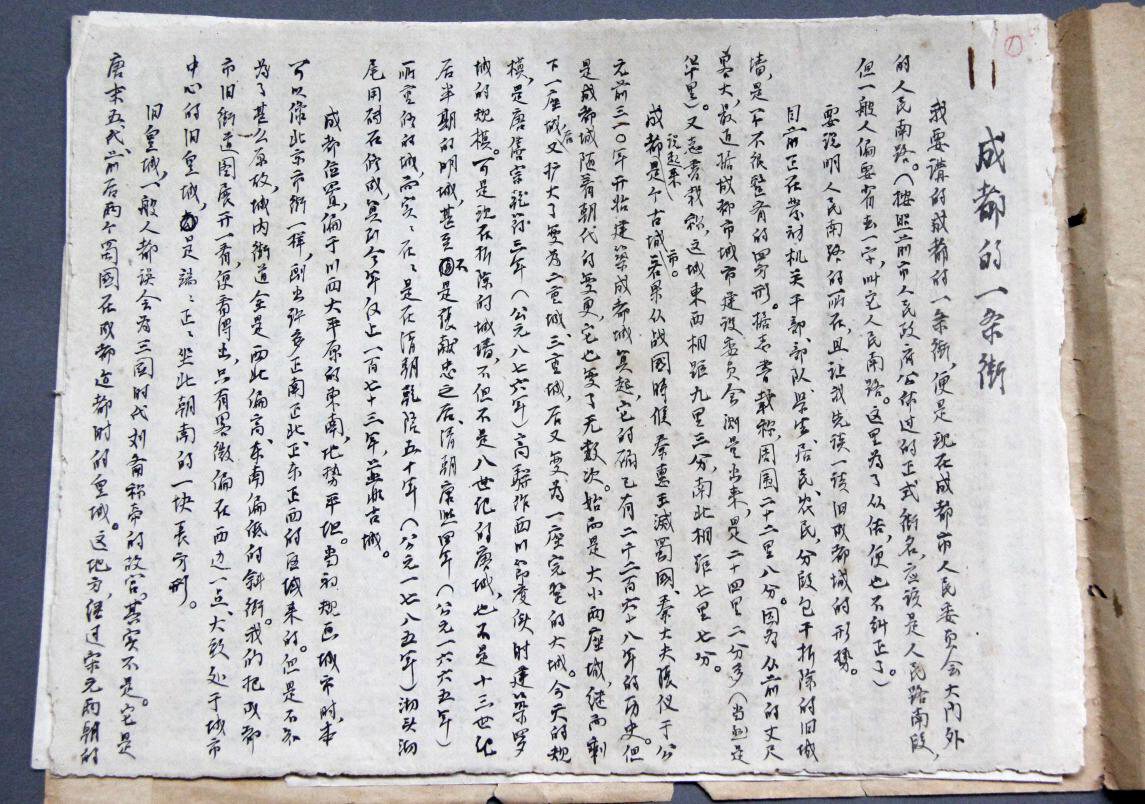 成都的一条街
我要讲的成都的一条街，便是现在成都市人民委员会大门外
的人民南路。（按照前市人民政府公布过的正式街名，应该是人民路南段，
但一般人偏要省去一字，叫它人民南路。这里为了从俗，便也不纠正了。）
要说明人民南路的所在，且让我先谈一谈旧成都城的形势。
目前正在劳动机关干部、部队、学生、居民、农民，分段包干拆除的旧城
墙，是一个不很整齐的四方形。据志书载称，周围二十二里八分。因为从前的丈尺
要大，最近据成都市城市建设委员会测量出来，是二十四里二分多（当然是
华里）。又志书载称，这城东西相距九里三分，南北相距七里七分。
成都说起来是个古城市。若果从战国时候秦惠王灭蜀国、秦大夫张仪于公
元前三一〇年开始建筑成都城算起，它的确已有二千二百六十八年的历史。但
是成都城随着朝代的变更，它也变了无数次。始而是大小两座城，继而剩
下一座城，后又扩大了变为二重城、三重城，后又变为一座完整的大城。今天的规
模，是唐僖宗乾符三年（公元八七六年）高骈作西川节度使时建筑罗
城的规模。可是现在拆除的城墙，不但不是八世纪的唐城，也不是十三世纪
后半期的明城，甚至不是张献忠之后、清朝康熙四年（公元一六六五年）
所重修的城，而实实在在是在清朝乾隆五十年（公元一七八五年）彻头彻
尾用砖石修成，算到今年仅止一百七十三年，并非古城。
成都位置，偏于川西大平原的东南，地势平坦。当初规画城市时，本
可以像北京市街一样，划出许多正南正北、正东正西的区域来的。但是不知
为了甚么原故，城内街道全是西北偏高、东南偏低的斜街。我们把成都
市旧街道图展开一看，便看得出，只有略微偏在西边一点、大致处于城市
中心的旧皇城，是端端正正坐北朝南的一块长方形。
旧皇城，一般人都误会为三国时代刘备称帝的故宫。其实不是。它是
唐末五代、前后两个蜀国在成都建都时的皇城。这地方，经过宋元两朝的